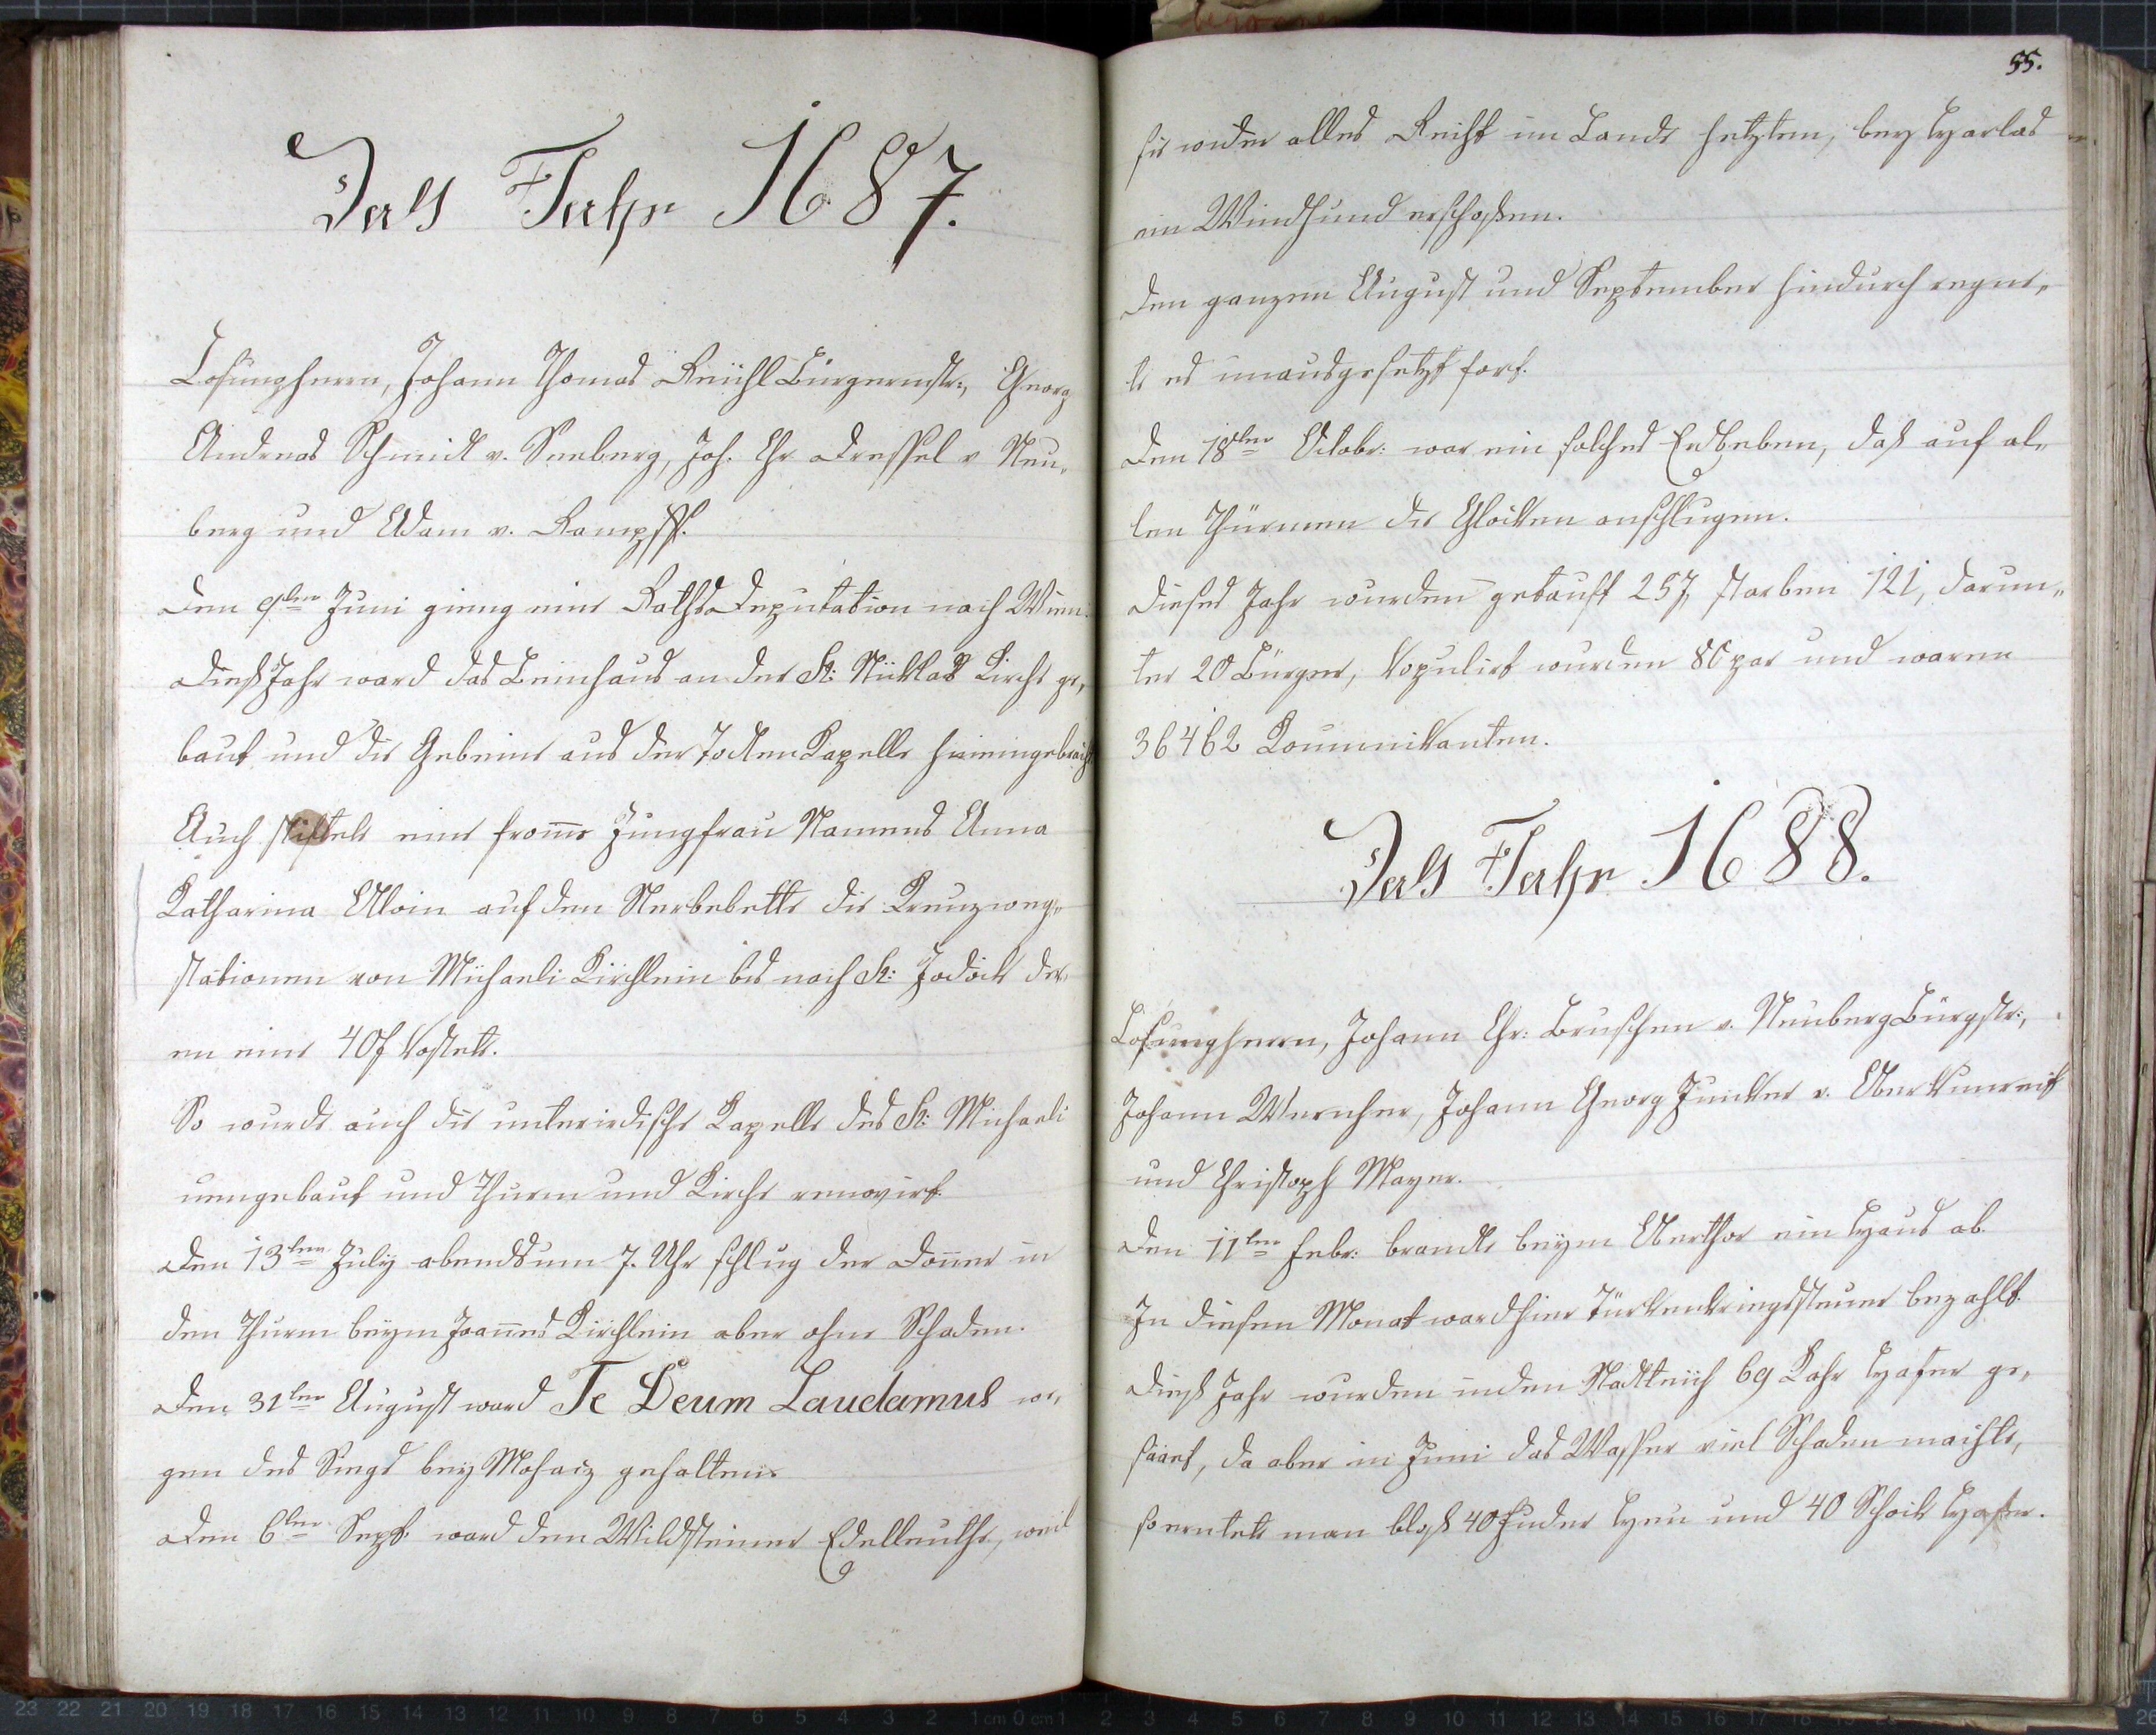 Das Jahr 1687.
Losungherrn, Johann Thomas Reichl Bürgermstr:, Georg
Andreas Schmidl v. Seeberg, Joh. Chr Dressel v Neu„
berg und Adam v. Rampff.
Den 9ten Juni gieng eine RathsDeputation nach Wien.
Dieß Jahr ward das Beinhaus an der St: Nicklas Kirche ge„
baut und die Gebeine aus der TodtenKapelle hineingebracht
Auch stiftete eine from̄e Jungfrau Namens Anna
Katharina auf dem Sterbebette die Kreuzweg„
stationen von Michaeli Kirchlein bis nach St: Jodock der„
en eine 40f kostete.
So wurde auch die unterirdische Kapelle des St: Michaeli
umgebaut und Thurm und Kirche renovirt.
Den 13ten July abends um 7. Uhr schlug der Don̄er in
den Thurm beym Joan̄es Kirchlein aber ohne Schaden.
Den 31ten August ward Te Deum Laudamus we„
gen des Siegs bey Mohacz gehalten.
Den 6ten Sept. ward dem Wildsteiner Edelleuthe, weil
55.
sie wider alles Recht im Lande hetzten, bey Harlas
ein Windhund erschoßen.
Den ganzen August und September hindurch regne„
te es unausgesetzt fort.
Den 18ten Octobr: war ein solches Erdbeben, daß auf al„
len Thürmen die Glocken anschlugen.
Dieses Jahr wurden getauft 257, starben 121, darun„
ter 20 Bürger, kopulirt wurden 86 par und waren
36462 Kommunikanten.
Das Jahr 1688.
Losungherrn, Johann Chr: Bruschen v. Neuberg Bürgstr:,
Johann Wernher, Johann Georg Junker v. Oberkunreit
und Christoph Mayer.
Den 11ten Febr: brande beym Oberthor ein Haus ab.
In diesen Monat ward hier Türkenkriegssteuer bezahlt.
Dieß Jahr wurden in den Stadtteich 69 Kahr Hafer ge„
säet, da aber in Juni das Wasser viel Schaden machte,
so erntete man bloß 40 Fuder Heu und 40 Schock Hafer.